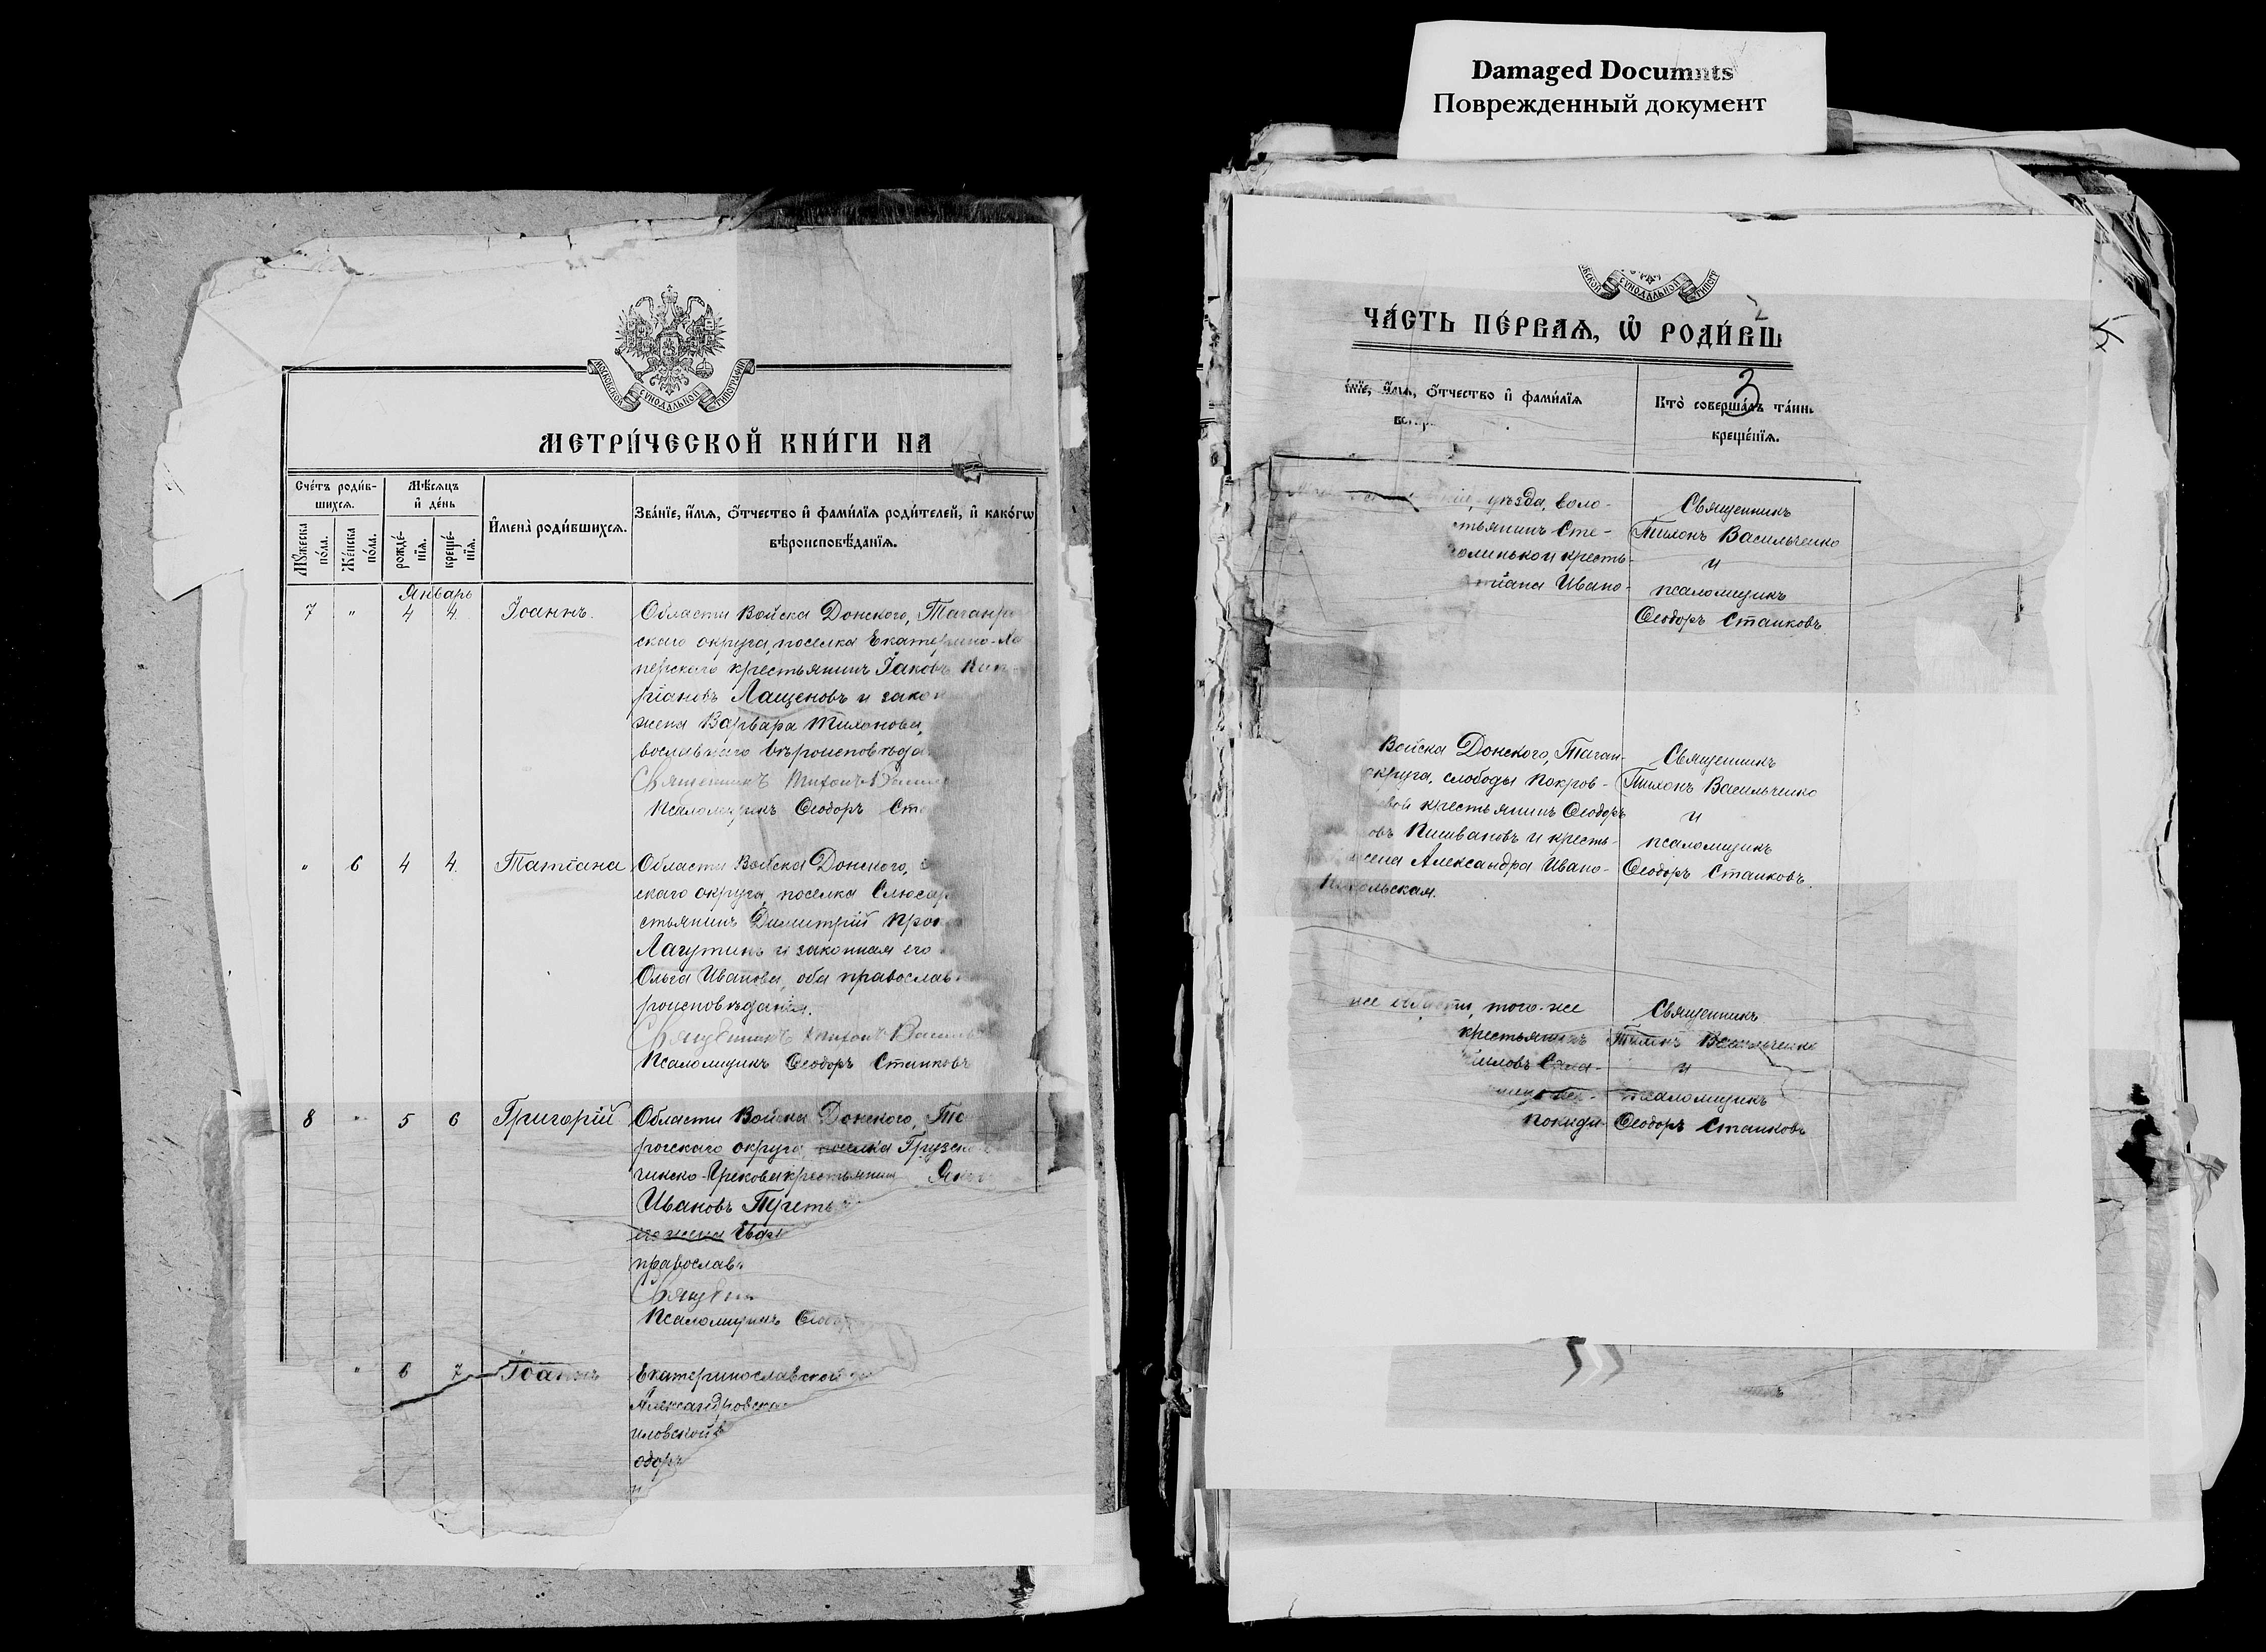 Damaged Documnts
Поврежденный документ
МОСКОВСКОЙ СѴНОДАЛЬНОЙ ТИПОГРАФІИ
МЕТРИ́ЧЕСКОЙ КНИ́ГИ НА
Сче́тъ роди́в-
шихсѧ.
Мѣ́сѧцъ
и҆ де́нь
Мꙋ́жеска
по́ла.
Же́нска
по́ла.
рожде́-
нїѧ.
креще́-
нїѧ.
И҆мена̀ роди́вшихсѧ.
Зва́нїе, и҆́мѧ, ѻ҆́тчество и҆ фами́лїѧ роди́телей, и҆ како́гѡ
вѣроисповѣ́данїѧ.
Январь
7 " 4 4. Іоаннъ.
Области Войска Донского, Таганро
скаго округа, поселка Екатерино-Ха
перскаго крестьянинъ Іаковъ Кип
ріановъ Лащеновъ и закон
жена Варвара Тихонова,
вославнаго вѣроисповѣда
Священникъ Тихонъ
Псаломщикъ Ѳеодоръ Ста
" 6 4 4. Татіана
Области Войска Донского,
скаго округа, поселка Слюсар
стьянинъ Димитрій Про
Лагутинъ и законная его
Ольга Иванова, оба православ
роисповѣданія.
Священникъ Тихонъ Василь
Псаломщикъ Ѳеодоръ Станковъ
8 " 5 6 Григорій
Области Войска Донского, Та
рогскаго округа, поселка Грузско
чинско-Грекова крестьянин
Ивановъ
его жена
православ
Священ
Псаломщикъ Ѳеодо
" 6 7 Іоаннъ
Екатеринославской
Александровск
иловской
одоръ
и
СѴНОДАЛЬНОЙ ТИПОГР
ЧА́СТЬ ПЕ́РВАѦ, Ѡ҆ РОДИ́ВШ
3
а́нїе, и҆́мѧ, ѻ҆́тчество и҆ фами́лїѧ
Кто̀ соверша́лъ та́инс
креще́нїѧ.
уѣзда, воло-
стьянинъ Сте-
кресть-
Ивано-
Священникъ
Тихонъ Васильченко
и
псаломщикъ
Ѳеодоръ Станковъ.
Войска Донского, Таган-
округа, слободы Покров-
вой крестьянинъ Ѳеодоръ
овъ и кресть-
Александра Ивано-
Никольская.
Священникъ
Тихонъ Васильченко
и
псаломщикъ
Ѳеодоръ Станковъ.
же области, того-же
крестьянинъ
Священникъ
Тихонъ Васильченко
и
псаломщикъ
Ѳеодоръ Станковъ